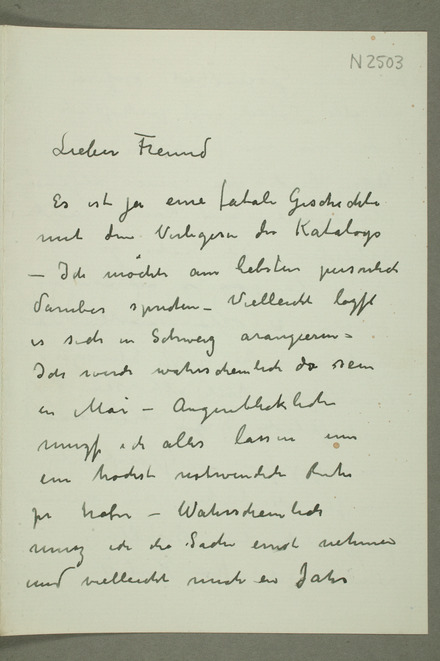 N2503
Lieber Freund
Es ist ja eine fatale Geschichte
mit dem Verlegen des Katalogs
– Ich möchte am liebsten persönlich
darüber sprechen – Vielleicht läßt
es sich in Schweiz arangieren –
Ich werde wahrscheinlich da sein
im Mai – Augenblicklich
muß ich alles lassen um
ein höchst notwendige Ruhe
zu haben – Wahrscheinlich
muß ich die Sache ernst nehmen
und vielleicht noch ein Jahr